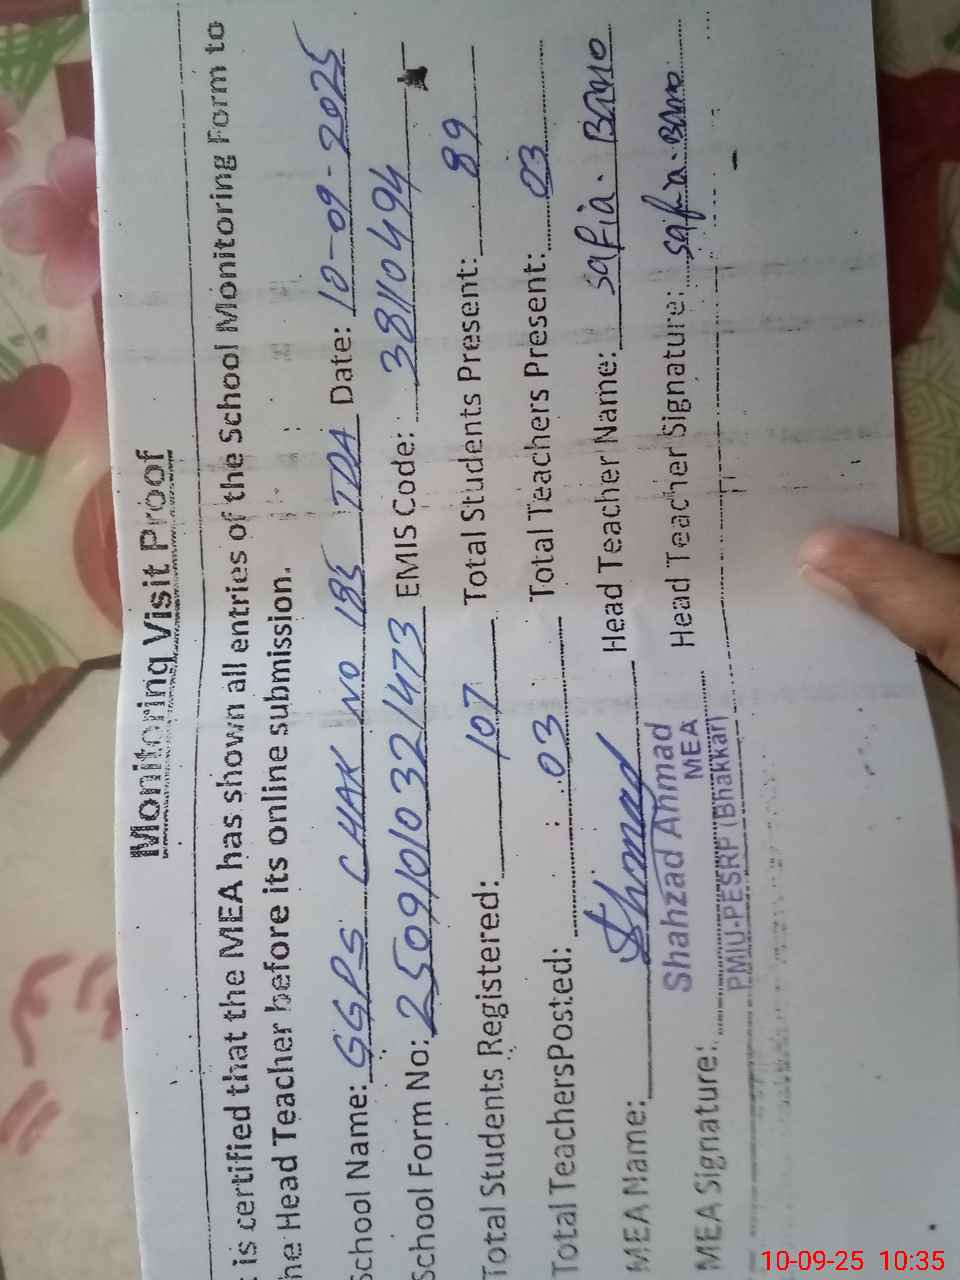 Monitoring Visit Proof
is certified that the MEA has shown all entries of the School Monitoring Form to
he Head Teacher before its online submission.
School Name: GGPS CHAK NO 195 TDA Date: 10-09-2025
School Form No: 2509101032/473 EMIS Code: 38110494
Total Students Registered: 107 Total Students Present: 89
Total TeachersPosted: 03 Total Teachers Present: 03
MEA Name: Head Teacher Name: Safia. Bano
Shahzad Ahmad
MEA
PMIU-PESRP (Bhakkar)
MEA Signature: Head Teacher Signature: Safia. Bano
10-09-25 10:35